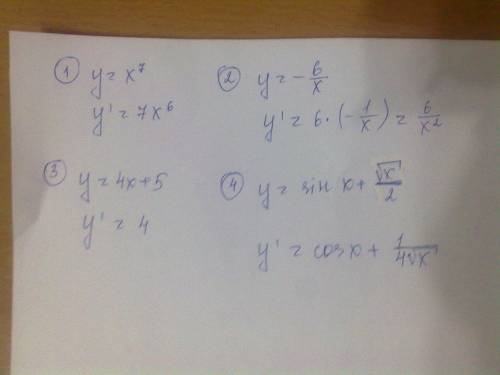 ① y = x⁷
y' = 7x⁶
② y = - 6/x
y' = 6 · (- 1/x) = 6/x²
③ y = 4x + 5
y' = 4
④ y = sin x + √x/2
y' = cos x + 1/4√x